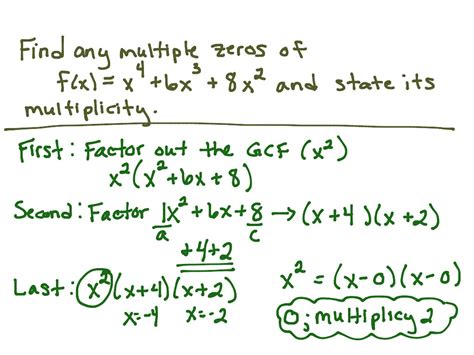 Find any multiple zeros of
f(x) = x⁴ + 6x³ + 8x² and state its
multiplicity.
First: Factor out the GCF (x²)
x²(x² + 6x + 8)
Second: Factor 1x² + 6x + 8 → (x+4)(x+2)
a c
+4+2
Last: x²(x+4)(x+2) x² = (x-0)(x-0)
x=-4 x=-2 0; multiplicy 2